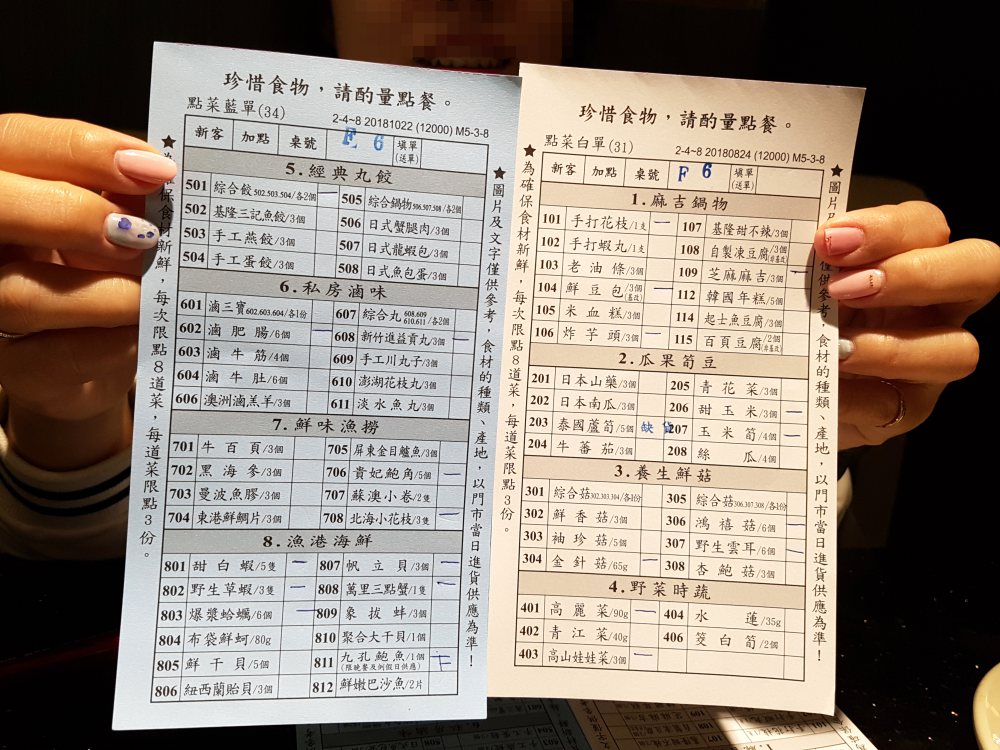 珍惜食物，請酌量點餐。
點菜藍單(34)
2-4~8 20181022 (12000) M5-3-8
新客 加點 桌號 E 6 填單(送單)
5.經典丸餃
501 綜合餃502.503.504/各2個 一
502 基隆三記魚餃/3個
503 手工燕餃/3個
504 手工蛋餃/3個
505 綜合鍋物506.507.508/各2個
506 日式蟹腿肉/3個
507 日式龍蝦包/3個
508 日式魚包蛋/3個
6.私房滷味
601 滷三寶602.603.604/各1份
602 滷肥腸/6個 一
603 滷牛筋/4個
604 滷牛肚/6個
606 澳洲滷羔羊/3個
607 綜合丸608.609 610.611/各2個
608 新竹進益貢丸/3個 一
609 手工川丸子/3個
610 澎湖花枝丸/3個
611 淡水魚丸/3個
7.鮮味漁撈
701 牛百頁/3個
702 黑海參/3個
703 曼波魚膠/3個
704 東港鮮鯛片/3個
705 屏東金目鱸魚/3個
706 貴妃鮑角/5個 一
707 蘇澳小卷/2隻
708 北海小花枝/3隻 一
8.漁港海鮮
801 甜白蝦/5隻 一
802 野生草蝦/3隻 一
803 爆漿蛤蠣/6個 一
804 布袋鮮蚵/80g
805 鮮干貝/5個
806 紐西蘭貽貝/3個
807 帆立貝/3個 一
808 萬里三點蟹/1隻 一
809 象拔蚌/3個
810 聚合大干貝/1個
811 九孔鮑魚/1個
(限晚餐及例假日供應)
812 鮮嫩巴沙魚/2片
★為確保食材新鮮，每次限點8道菜，每道菜限點3份。
★圖片及文字僅供參考，食材的種類、產地，以門市當日進貨供應為準！
珍惜食物，請酌量點餐。
點菜白單(31)
2-4~8 20180824 (12000) M5-3-8
新客 加點 桌號 F 6 填單(送單)
1.麻吉鍋物
101 手打花枝/1支 一
102 手打蝦丸/1支
103 老油條/3個
104 鮮豆包/3個(非基改) 一
105 米血糕/3個
106 炸芋頭/3個 一
107 基隆甜不辣/3個
108 自製凍豆腐/3個(非基改)
109 芝麻麻吉/3個 一
112 韓國年糕/5個
114 起士魚豆腐/3個
115 百頁豆腐/2個(非基改)
2.瓜果筍豆
201 日本山藥/3個
202 日本南瓜/3個
203 泰國蘆筍/5個 缺貨
204 牛蕃茄/3個
205 青花菜/3個
206 甜玉米/3個 一
207 玉米筍/4個 一
208 絲瓜/4個
3.養生鮮菇
301 綜合菇302.303.304/各1份
302 鮮香菇/3個
303 袖珍菇/5個
304 金針菇/65g 一
305 綜合菇306.307.308/各1份
306 鴻禧菇/6個 一
307 野生雲耳/6個 一
308 杏鮑菇/3個
4.野菜時蔬
401 高麗菜/90g 一
402 青江菜/40g
403 高山娃娃菜/3個 一
404 水蓮/35g
406 筊白筍/2個
★為確保食材新鮮，每次限點8道菜，每道菜限點3份。
★圖片及文 僅供參考，食材的種類、產地，以門市當日進貨供應為準！